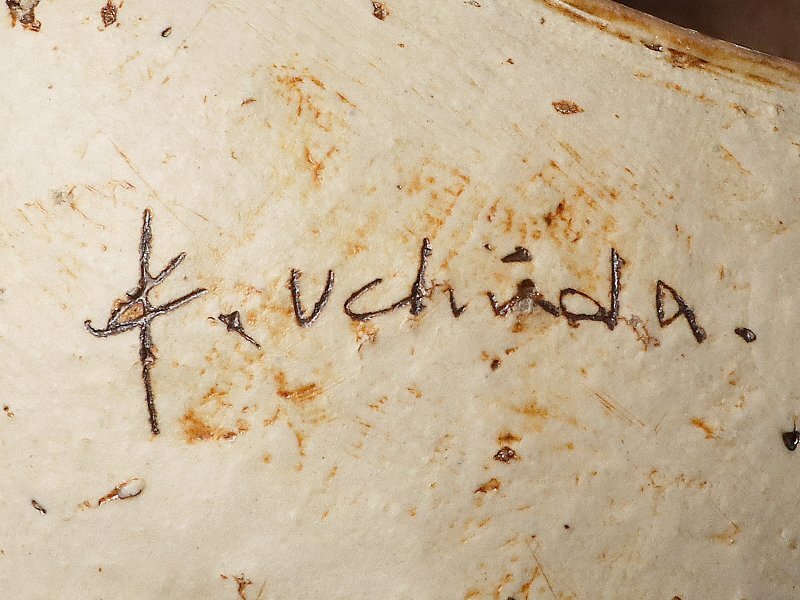 K. Uchida.